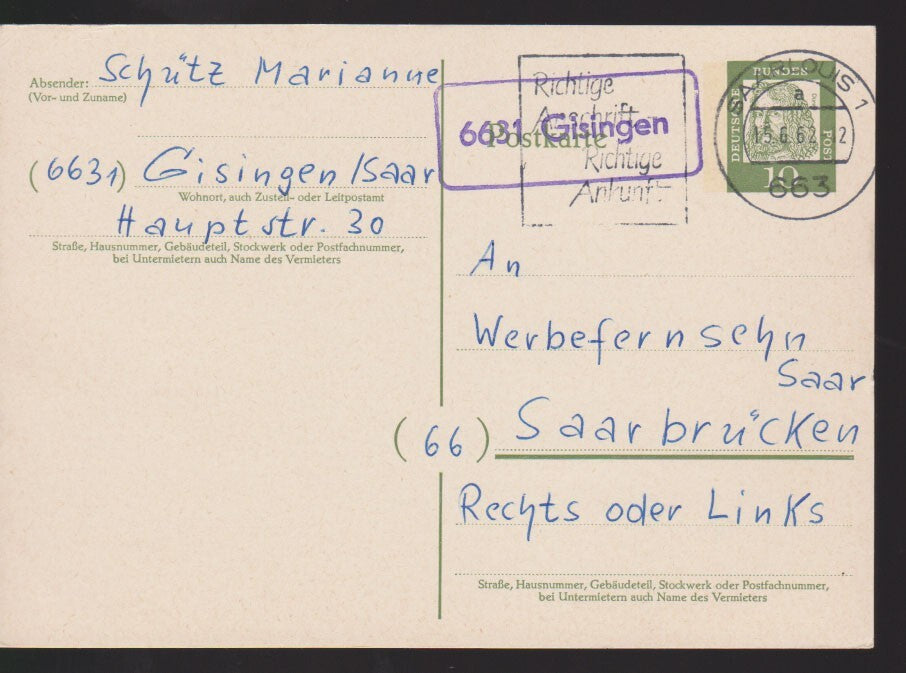 Absender: Schütz Marianne
(Vor- und Zuname)
(6631) Gisingen/Saar
Wohnort, auch Zustell- oder Leitpostamt
Hauptstr. 30
Straße, Hausnummer, Gebäudeteil, Stockwerk oder Postfachnummer,
bei Untermietern auch Name des Vermieters
Richtige
Anschrift
Richtige
Ankunft
6631 Gisingen
Postkarte
SAARLOUIS 1
a
663
DEUTSCHE
BUNDES
POST
10
An
Werbefernsehn
Saar
(66) Saarbrücken
Rechts oder Links
Straße, Hausnummer, Gebäudeteil, Stockwerk oder Postfachnummer,
bei Untermietern auch Name des Vermieters